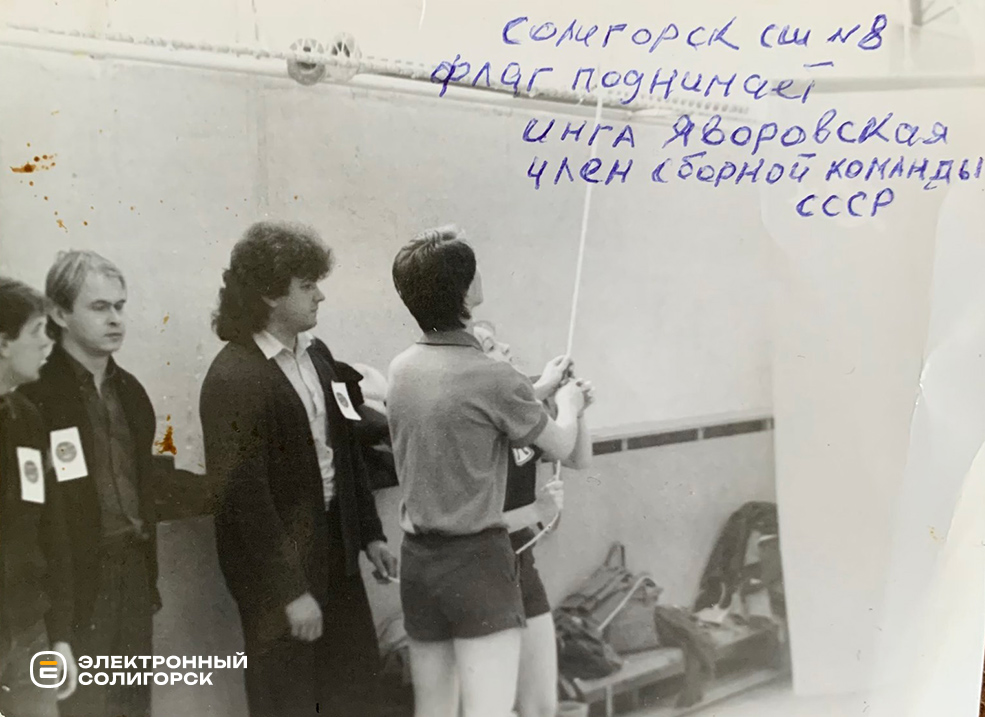 Солигорск сш N8
флаг поднимает
инга Яворовская
член сборной команды
СССР
ЭЛЕКТРОННЫЙ
СОЛИГОРСК